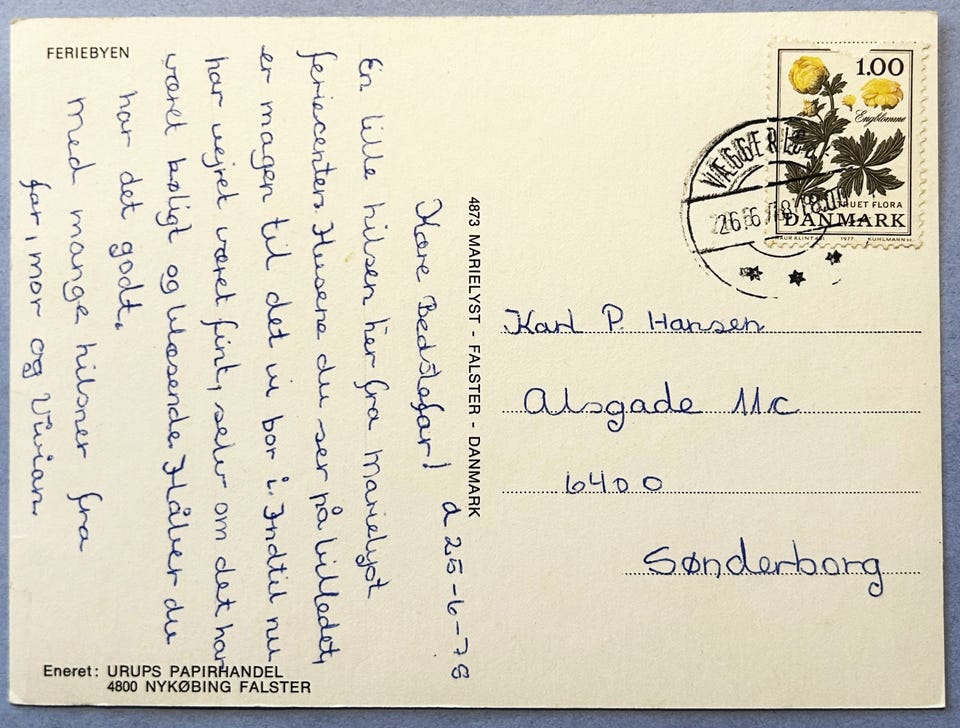 FERIEBYEN
d 25-6-78
Kære Bedstefar!
En lille hilsen her fra Marielyst
feriecenter. Husene du ser på billedet,
er magen til det vi bor i. Indtil nu
har vejret været fint, selv om det har
været køligt og blæsende. Håber du
har det godt.
Med mange hilsner fra
far, mor og Vivian.
Eneret: URUPS PAPIRHANDEL
4800 NYKØBING FALSTER
4873 MARIELYST - FALSTER - DANMARK
1.00
Engblomme
TRUET FLORA
DANMARK
1977
KUHLMANN sc.
VÆGGERL
26.6.78
Karl P. Hansen
Alsgade 11c
6400
Sønderborg